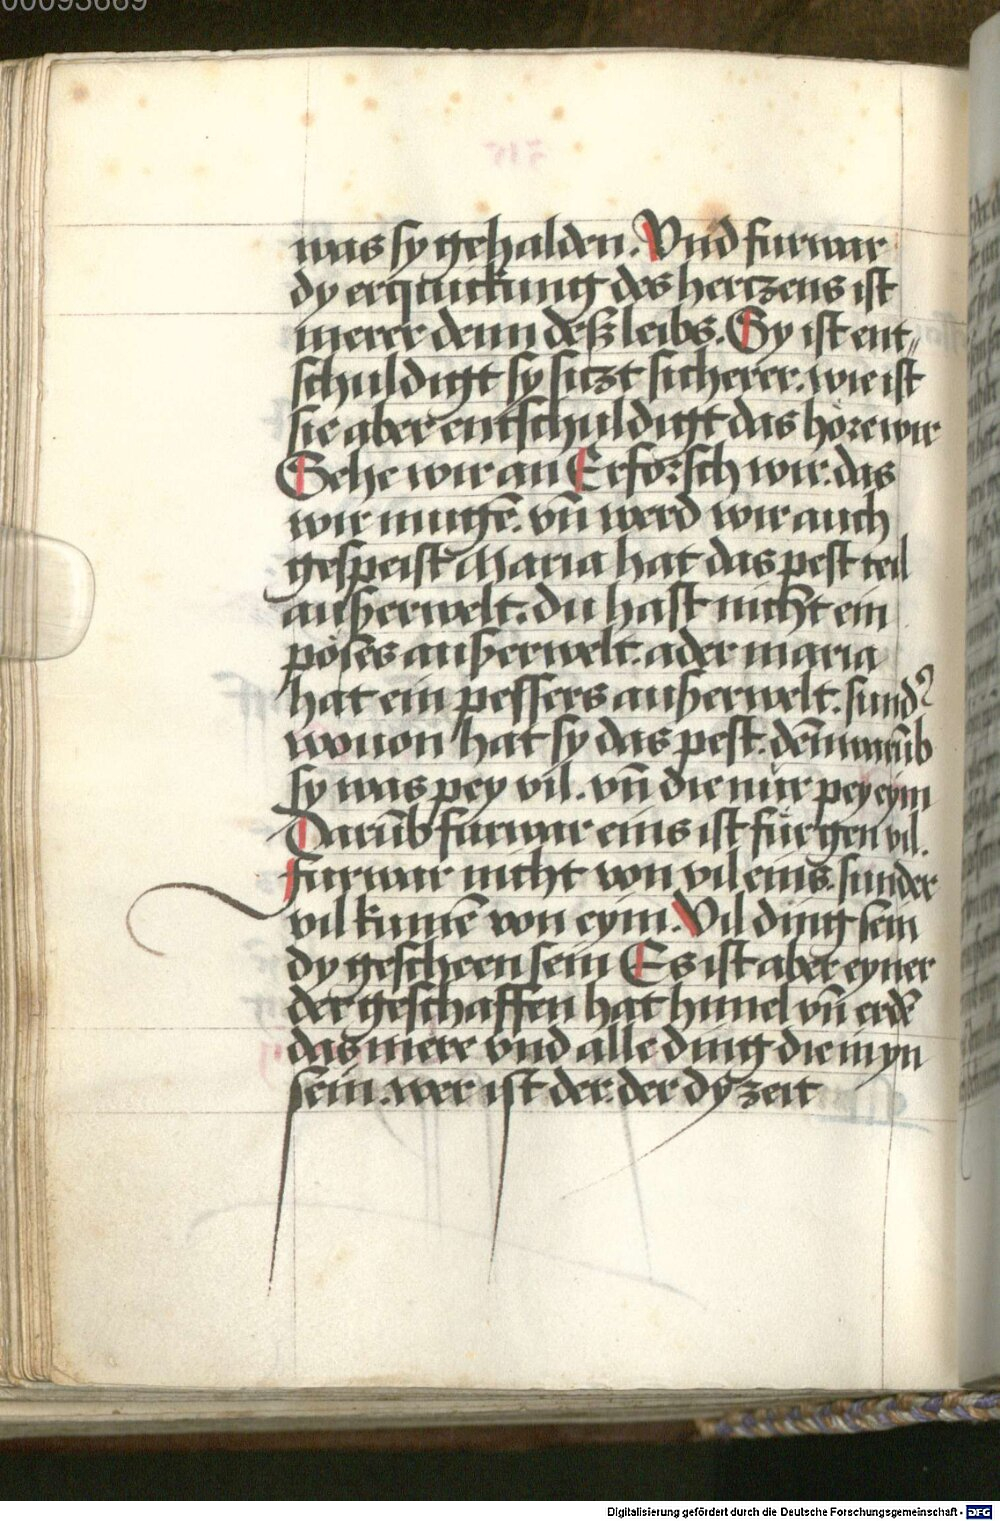 00093669
was sy gehalden. Vnd furwar
dy erquickung des hertzens ist
merer denn desz leibs. Sy ist ent„
schuldigt sy sitzt sicherer. wie ist
sie aber entschuldigt das höre wir
Sehe wir an Erforsch wir. das
wir mugē. vn̄ werd wir auch
gespeist Maria hat das pest teil
auszerwelt. du hast nicht ein
pöses auszerwelt. ader maria
hat ein pessers auszerwelt. sundꝛ
wouon hat sy das pest. den̄ warūb
sy was pey vil. vn̄ die nür pey eym
Darūb furwar eins ist für gen vil.
furwar nicht von vil eins. sunder
vil kumē von eym. Vil ding sein
dy gescheen sein Es ist aber eyner
der geschaffen hat himel vn̄ erdē
das mere vnd alle ding die in yn
sein. wer ist der. der dy zeit
Digitalisierung gefördert durch die Deutsche Forschungsgemeinschaft - DFG